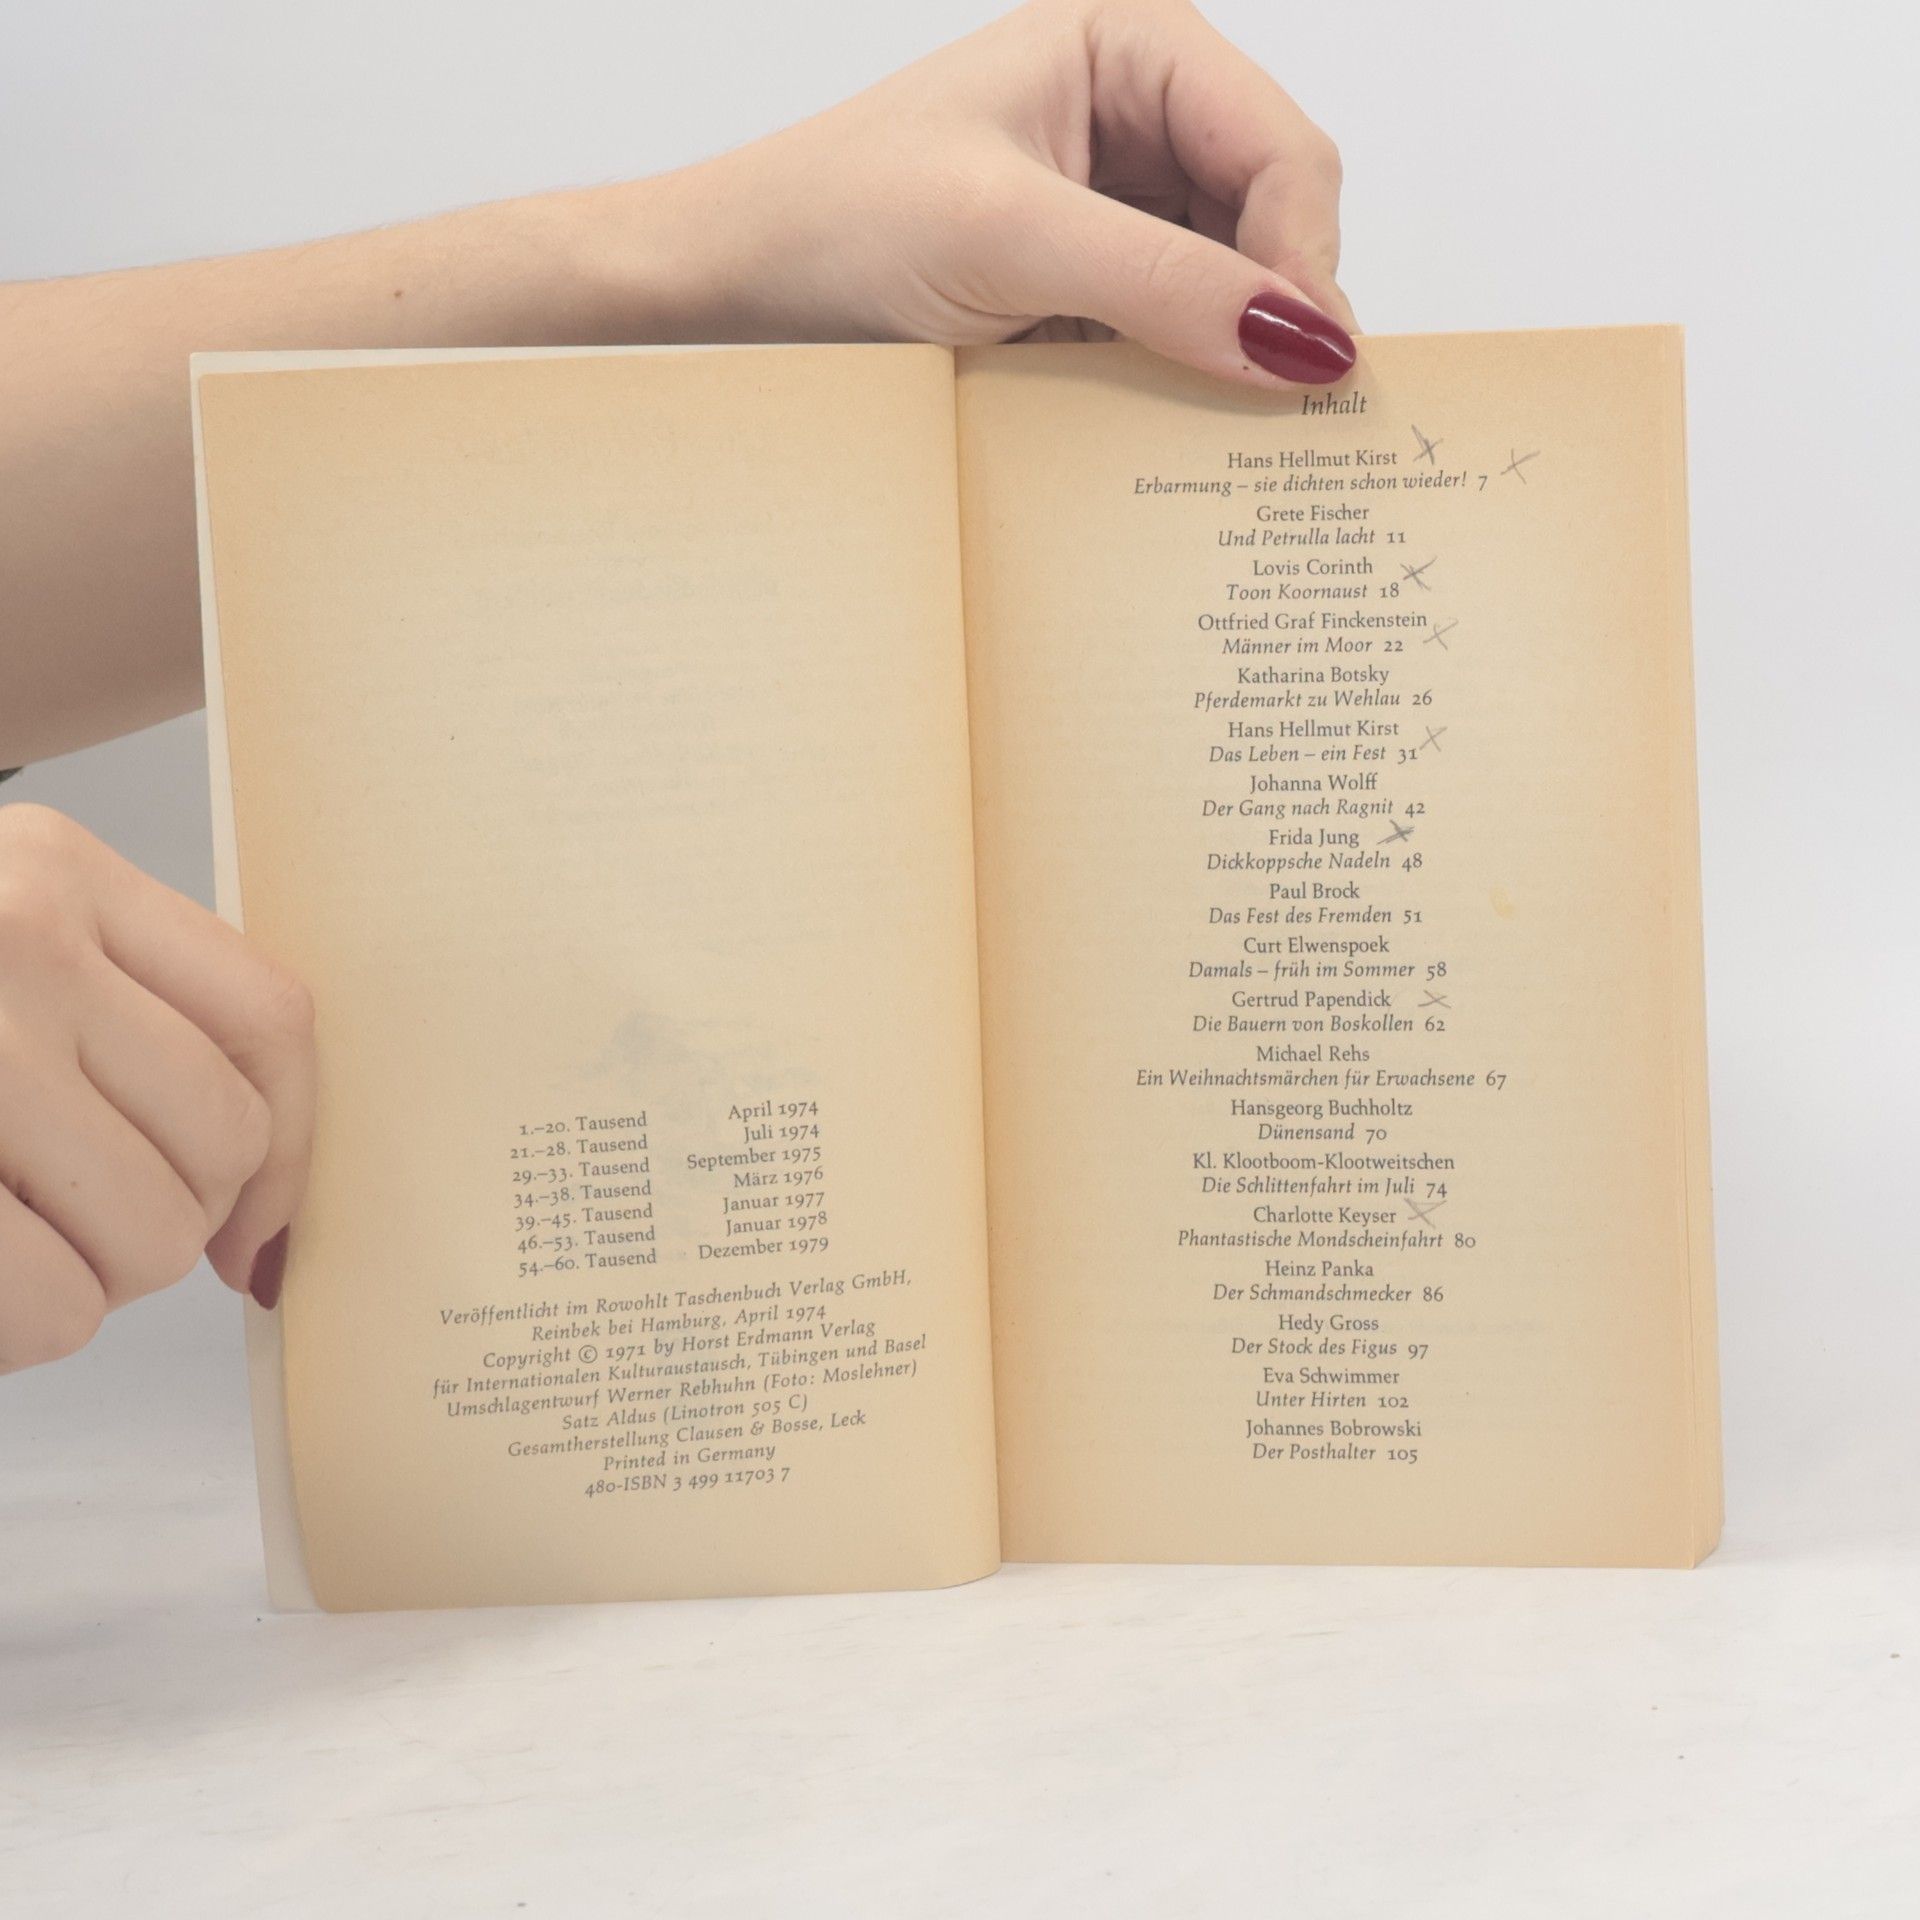 1.–20. Tausend April 1974
21.–28. Tausend Juli 1974
29.–33. Tausend September 1975
34.–38. Tausend März 1976
39.–45. Tausend Januar 1977
46.–53. Tausend Januar 1978
54.–60. Tausend Dezember 1979
Veröffentlicht im Rowohlt Taschenbuch Verlag GmbH,
Reinbek bei Hamburg, April 1974
Copyright © 1971 by Horst Erdmann Verlag
für Internationalen Kulturaustausch, Tübingen und Basel
Umschlagentwurf Werner Rebhuhn (Foto: Moslehner)
Satz Aldus (Linotron 505 C)
Gesamtherstellung Clausen & Bosse, Leck
Printed in Germany
480-ISBN 3 499 11703 7
Inhalt
Hans Hellmut Kirst
Erbarmung – sie dichten schon wieder! 7
Grete Fischer
Und Petrulla lacht 11
Lovis Corinth
Toon Koornaust 18
Ottfried Graf Finckenstein
Männer im Moor 22
Katharina Botsky
Pferdemarkt zu Wehlau 26
Hans Hellmut Kirst
Das Leben – ein Fest 31
Johanna Wolff
Der Gang nach Ragnit 42
Frida Jung
Dickkoppsche Nadeln 48
Paul Brock
Das Fest des Fremden 51
Curt Elwenspoek
Damals – früh im Sommer 58
Gertrud Papendick
Die Bauern von Boskollen 62
Michael Rehs
Ein Weihnachtsmärchen für Erwachsene 67
Hansgeorg Buchholtz
Dünensand 70
Kl. Klootboom-Klootweitschen
Die Schlittenfahrt im Juli 74
Charlotte Keyser
Phantastische Mondscheinfahrt 80
Heinz Panka
Der Schmandschmecker 86
Hedy Gross
Der Stock des Figus 97
Eva Schwimmer
Unter Hirten 102
Johannes Bobrowski
Der Posthalter 105